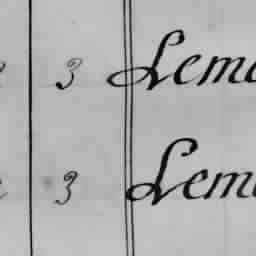 3 Lem
3 Lem